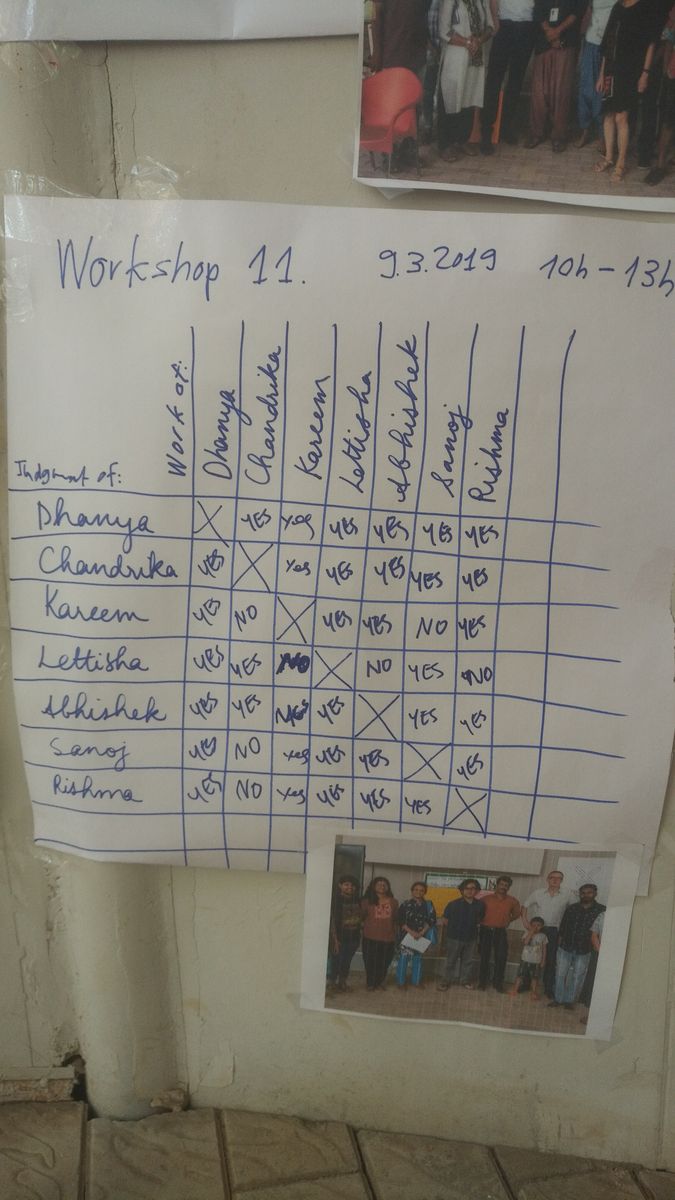 Workshop 11. 9.3.2019 10h-13h
Judgment of: Work of: Dhanya Chandrika Kareem Lettisha Abhishek Sanoj Rishma
Dhanya X YES Yes YES YES YES YES
Chandrika YES X Yes YES YES YES YES
Kareem YES NO X YES YES NO YES
Lettisha YES YES NO X NO YES NO
Abhishek YES YES YES X YES YES
Sanoj YES NO Yes YES YES X YES
Rishma YES NO Yes YES YES YES X